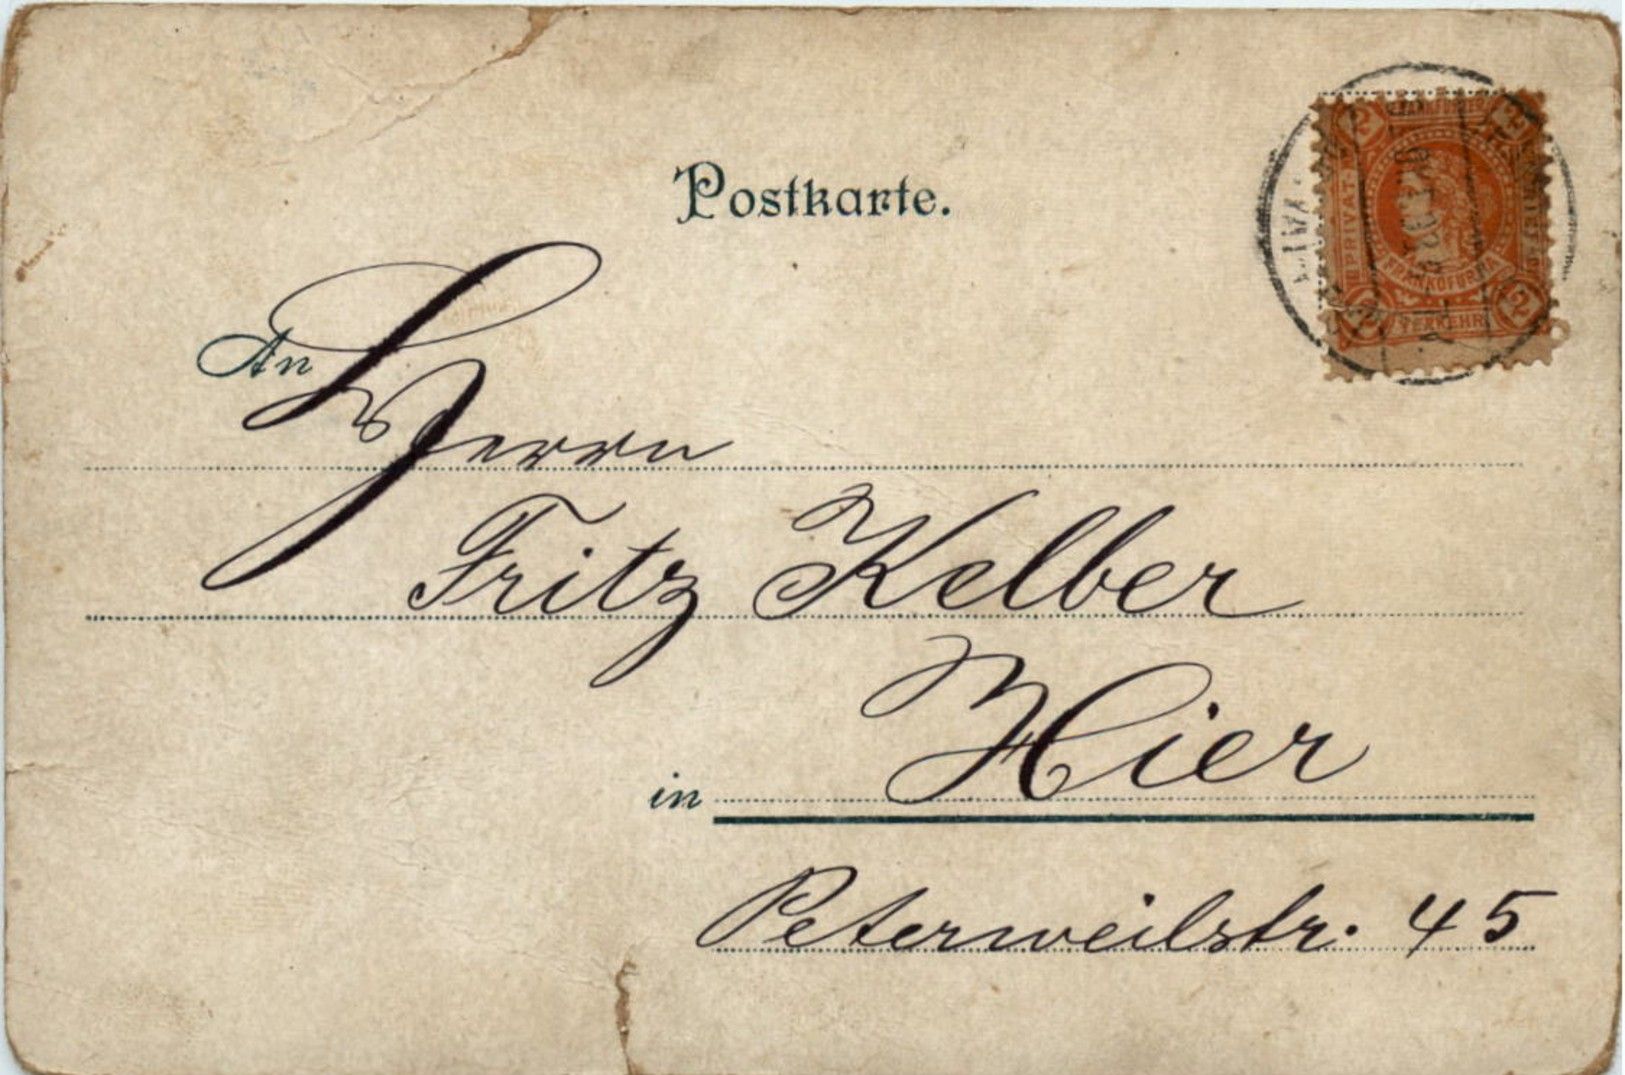 Postkarte.
2 FRANKFURTER 2
PRIVAT-
FRANKFURT A
2 VERKEHR 2
An
Herrn
Fritz Kelber
in Hier
Peterweilstr. 45